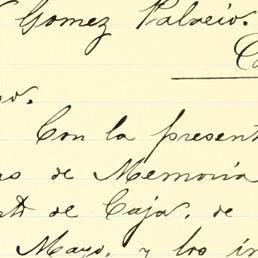 Gomez Palacio.
Con la present
de Memoria
de Caja, de
Mayo, y los in